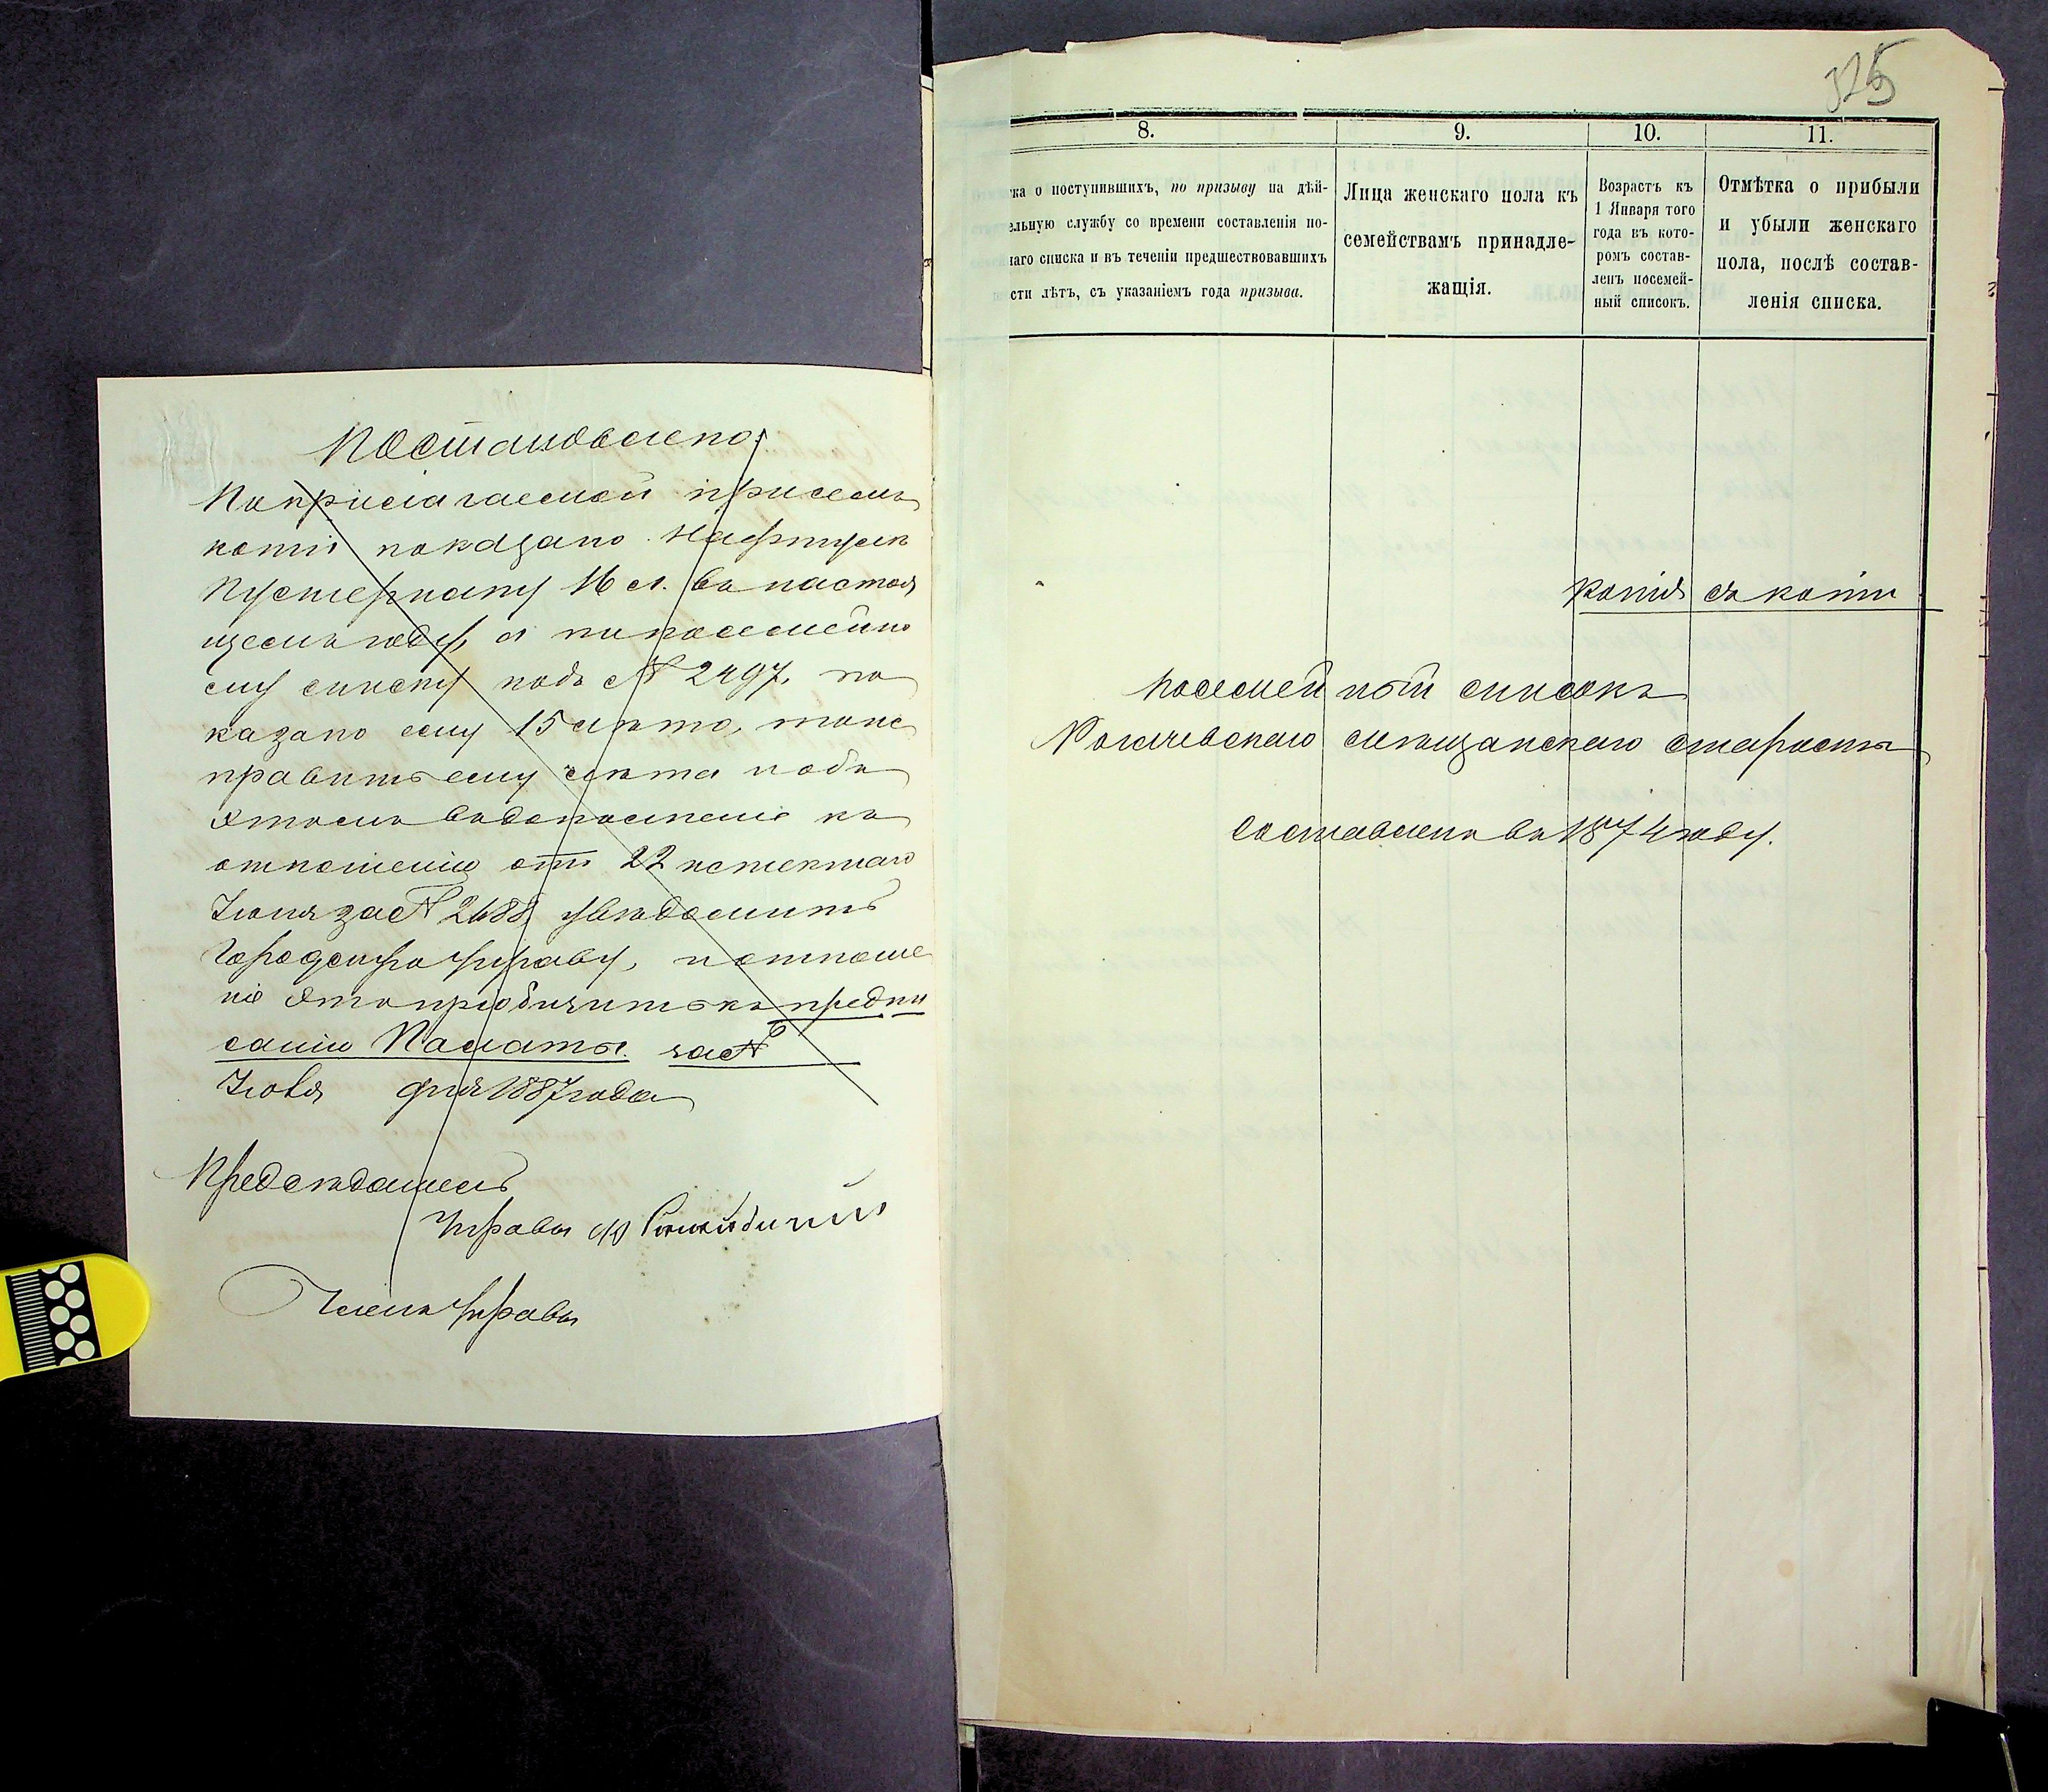 Постановлено:
По присягаемой присемъ
копіи показано Нафтулѣ
Пустернаку 16 л. въ настоя
щемъ году, а по посемейно
му списку подъ № 2497, по
казано ему 15 лѣтъ,
править ему лѣта
отношенію отъ 22 истекшаго
Іюня за № 2688, увѣдомить
Городскую Управу, и отноше
ніе это пріобщить къ предпи
санію Палаты за №
Іюля дня 1887 года
Предсѣдатель
Управы
Членъ Управы
325
8.
9.
10.
11.
ка о поступившихъ, по призыву на дѣй-
ельную службу со времени составленія по-
наго списка и въ теченіи предшествовавшихъ
сти лѣтъ, съ указаніемъ года призыва.
Лица женскаго пола къ
семействамъ принадле-
жащія.
Возрастъ къ
1 Января того
года въ кото-
ромъ состав-
ленъ посемей-
ный списокъ.
Отмѣтка о прибыли
и убыли женскаго
пола, послѣ состав-
ленія списка.
Копія съ копіи
Посемейный списокъ
Рогачевскаго мѣщанскаго старосты
Составленъ въ 1874 году.